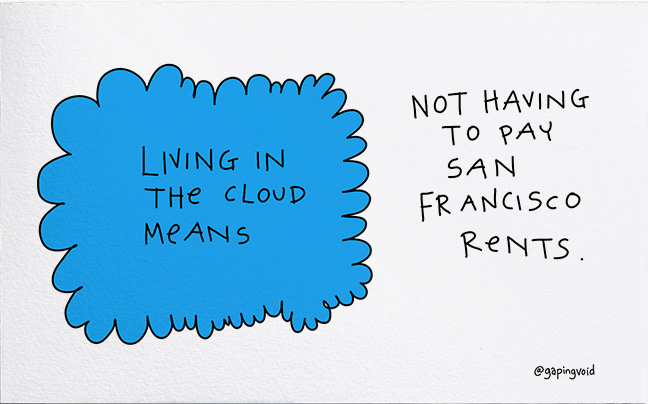 LIVING IN
THE CLOUD
MEANS
NOT HAVING
TO PAY
SAN
FRANCISCO
RENTS.
@gapingvoid